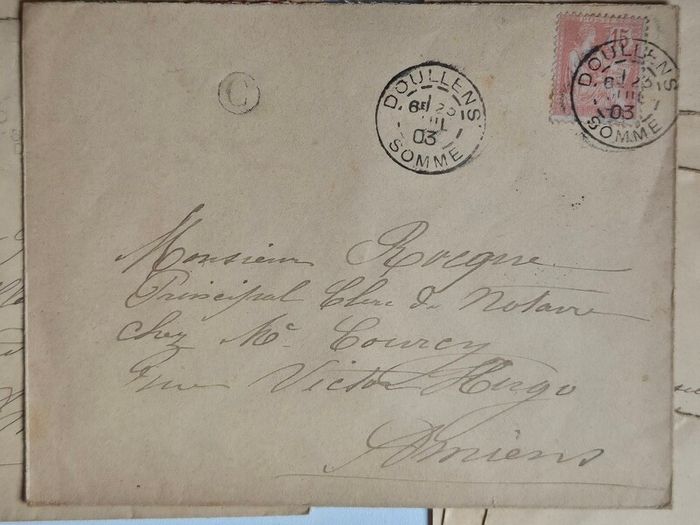 C
DOULLENS
6E 23
JUIL
03
SOMME
15
DOULLENS
6E 23
JUIL
03
SOMME
Monsieur Rocque
Principal Clerc de Notaire
chez Me Courcy
Rue Victor Hugo
Amiens